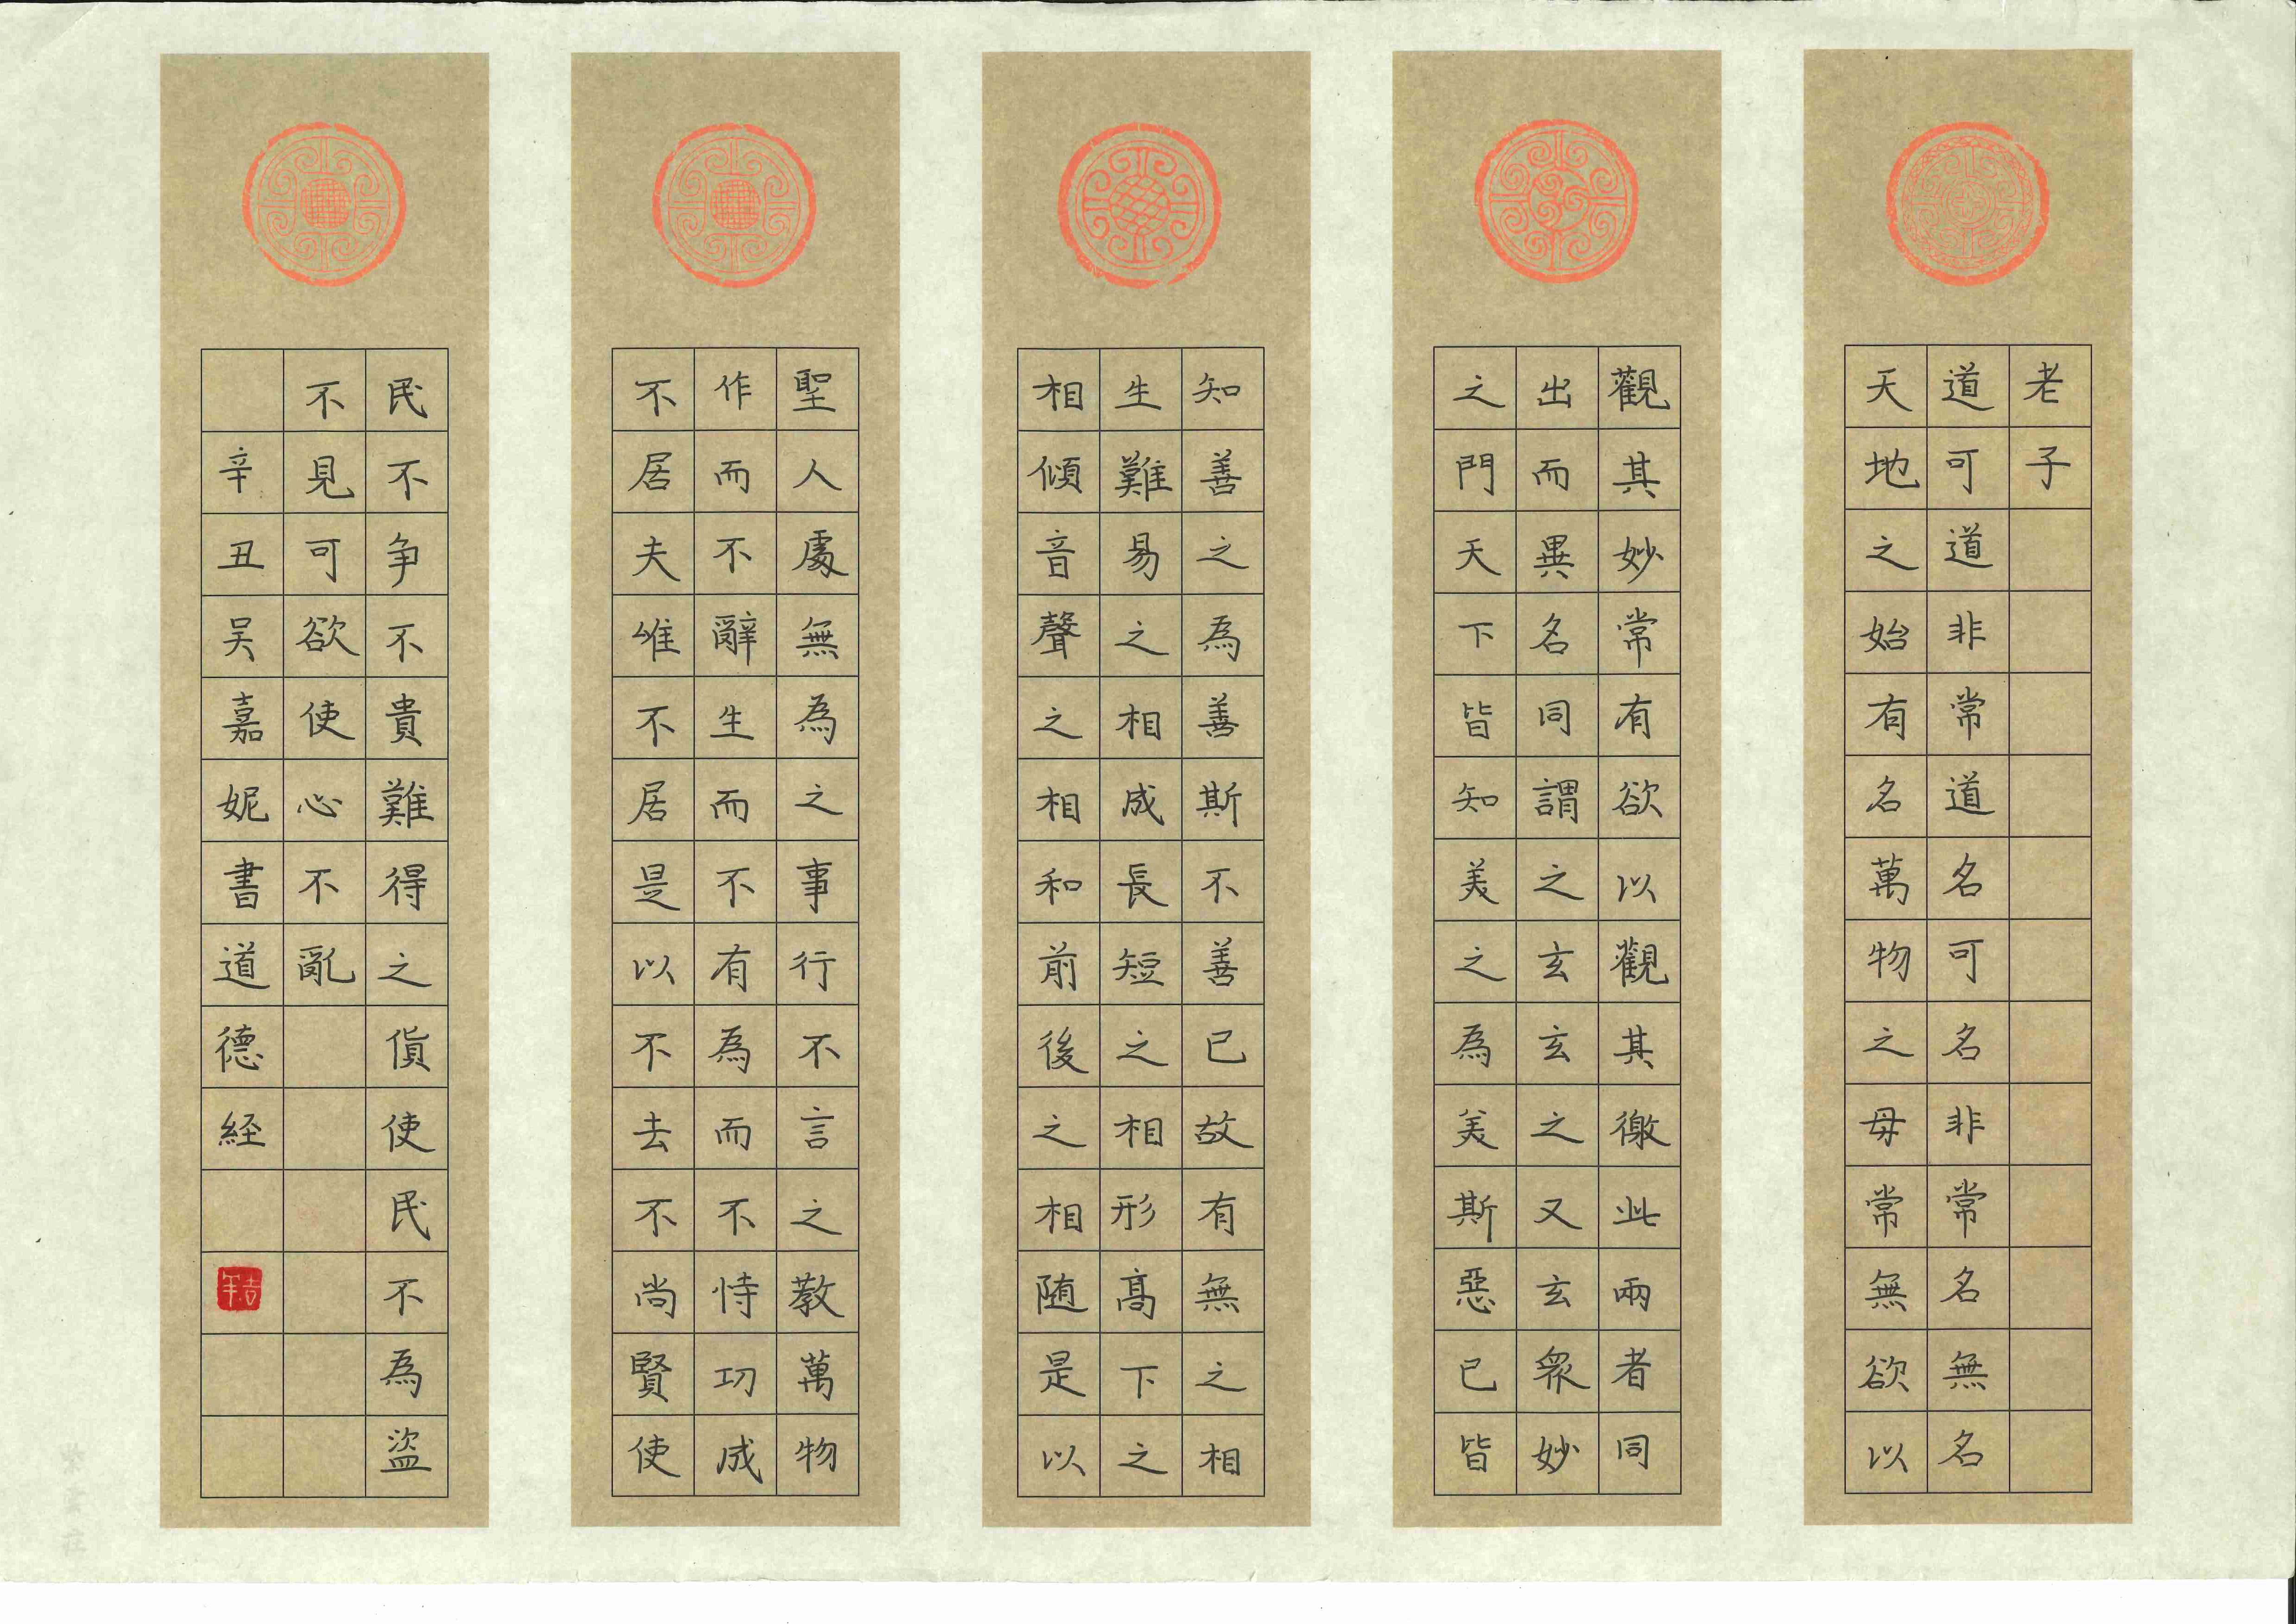 老子
道可道非常道名可名非常名無名
天地之始有名萬物之母常無欲以
觀其妙常有欲以觀其徼此兩者同
出而異名同謂之玄玄之又玄衆妙
之門天下皆知美之為美斯惡已皆
知善之為善斯不善已故有無之相
生難易之相成長短之相形高下之
相傾音聲之相和前後之相随是以
聖人處無為之事行不言之教萬物
作而不辭生而不有為而不恃功成
不居夫唯不居是以不去不尚賢使
民不争不貴難得之貨使民不為盜
不見可欲使心不亂
辛丑吴嘉妮書道德経
吉年